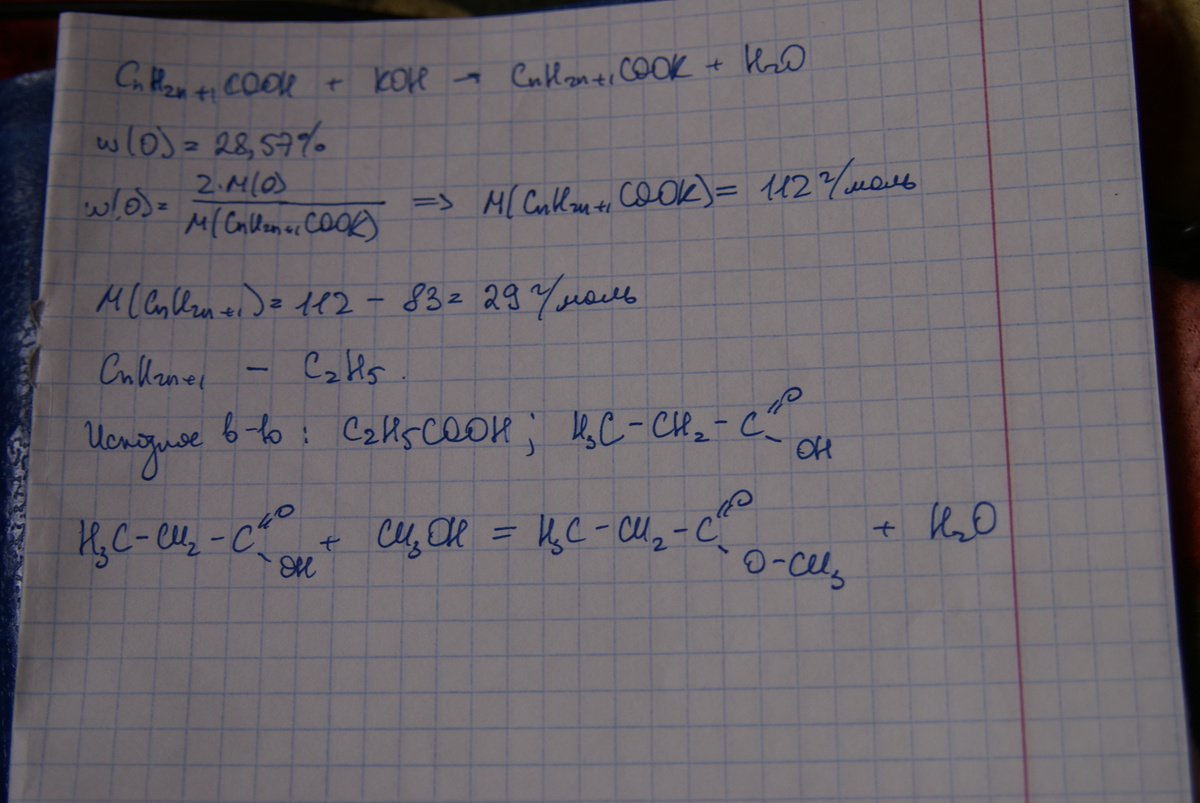 CnH2n+1COOH + KOH → CnH2n+1COOK + H2O
w(O) = 28,57%
w(O) = 2·M(O) / M(CnH2n+1COOK) => M(CnH2n+1COOK) = 112 г/моль
M(CnH2n+1) = 112 - 83 = 29 г/моль
CnH2n+1 - C2H5.
Исходное в-во: C2H5COOH; H3C-CH2-C(=O)-OH
H3C-CH2-C(=O)-OH + CH3OH = H3C-CH2-C(=O)-O-CH3 + H2O